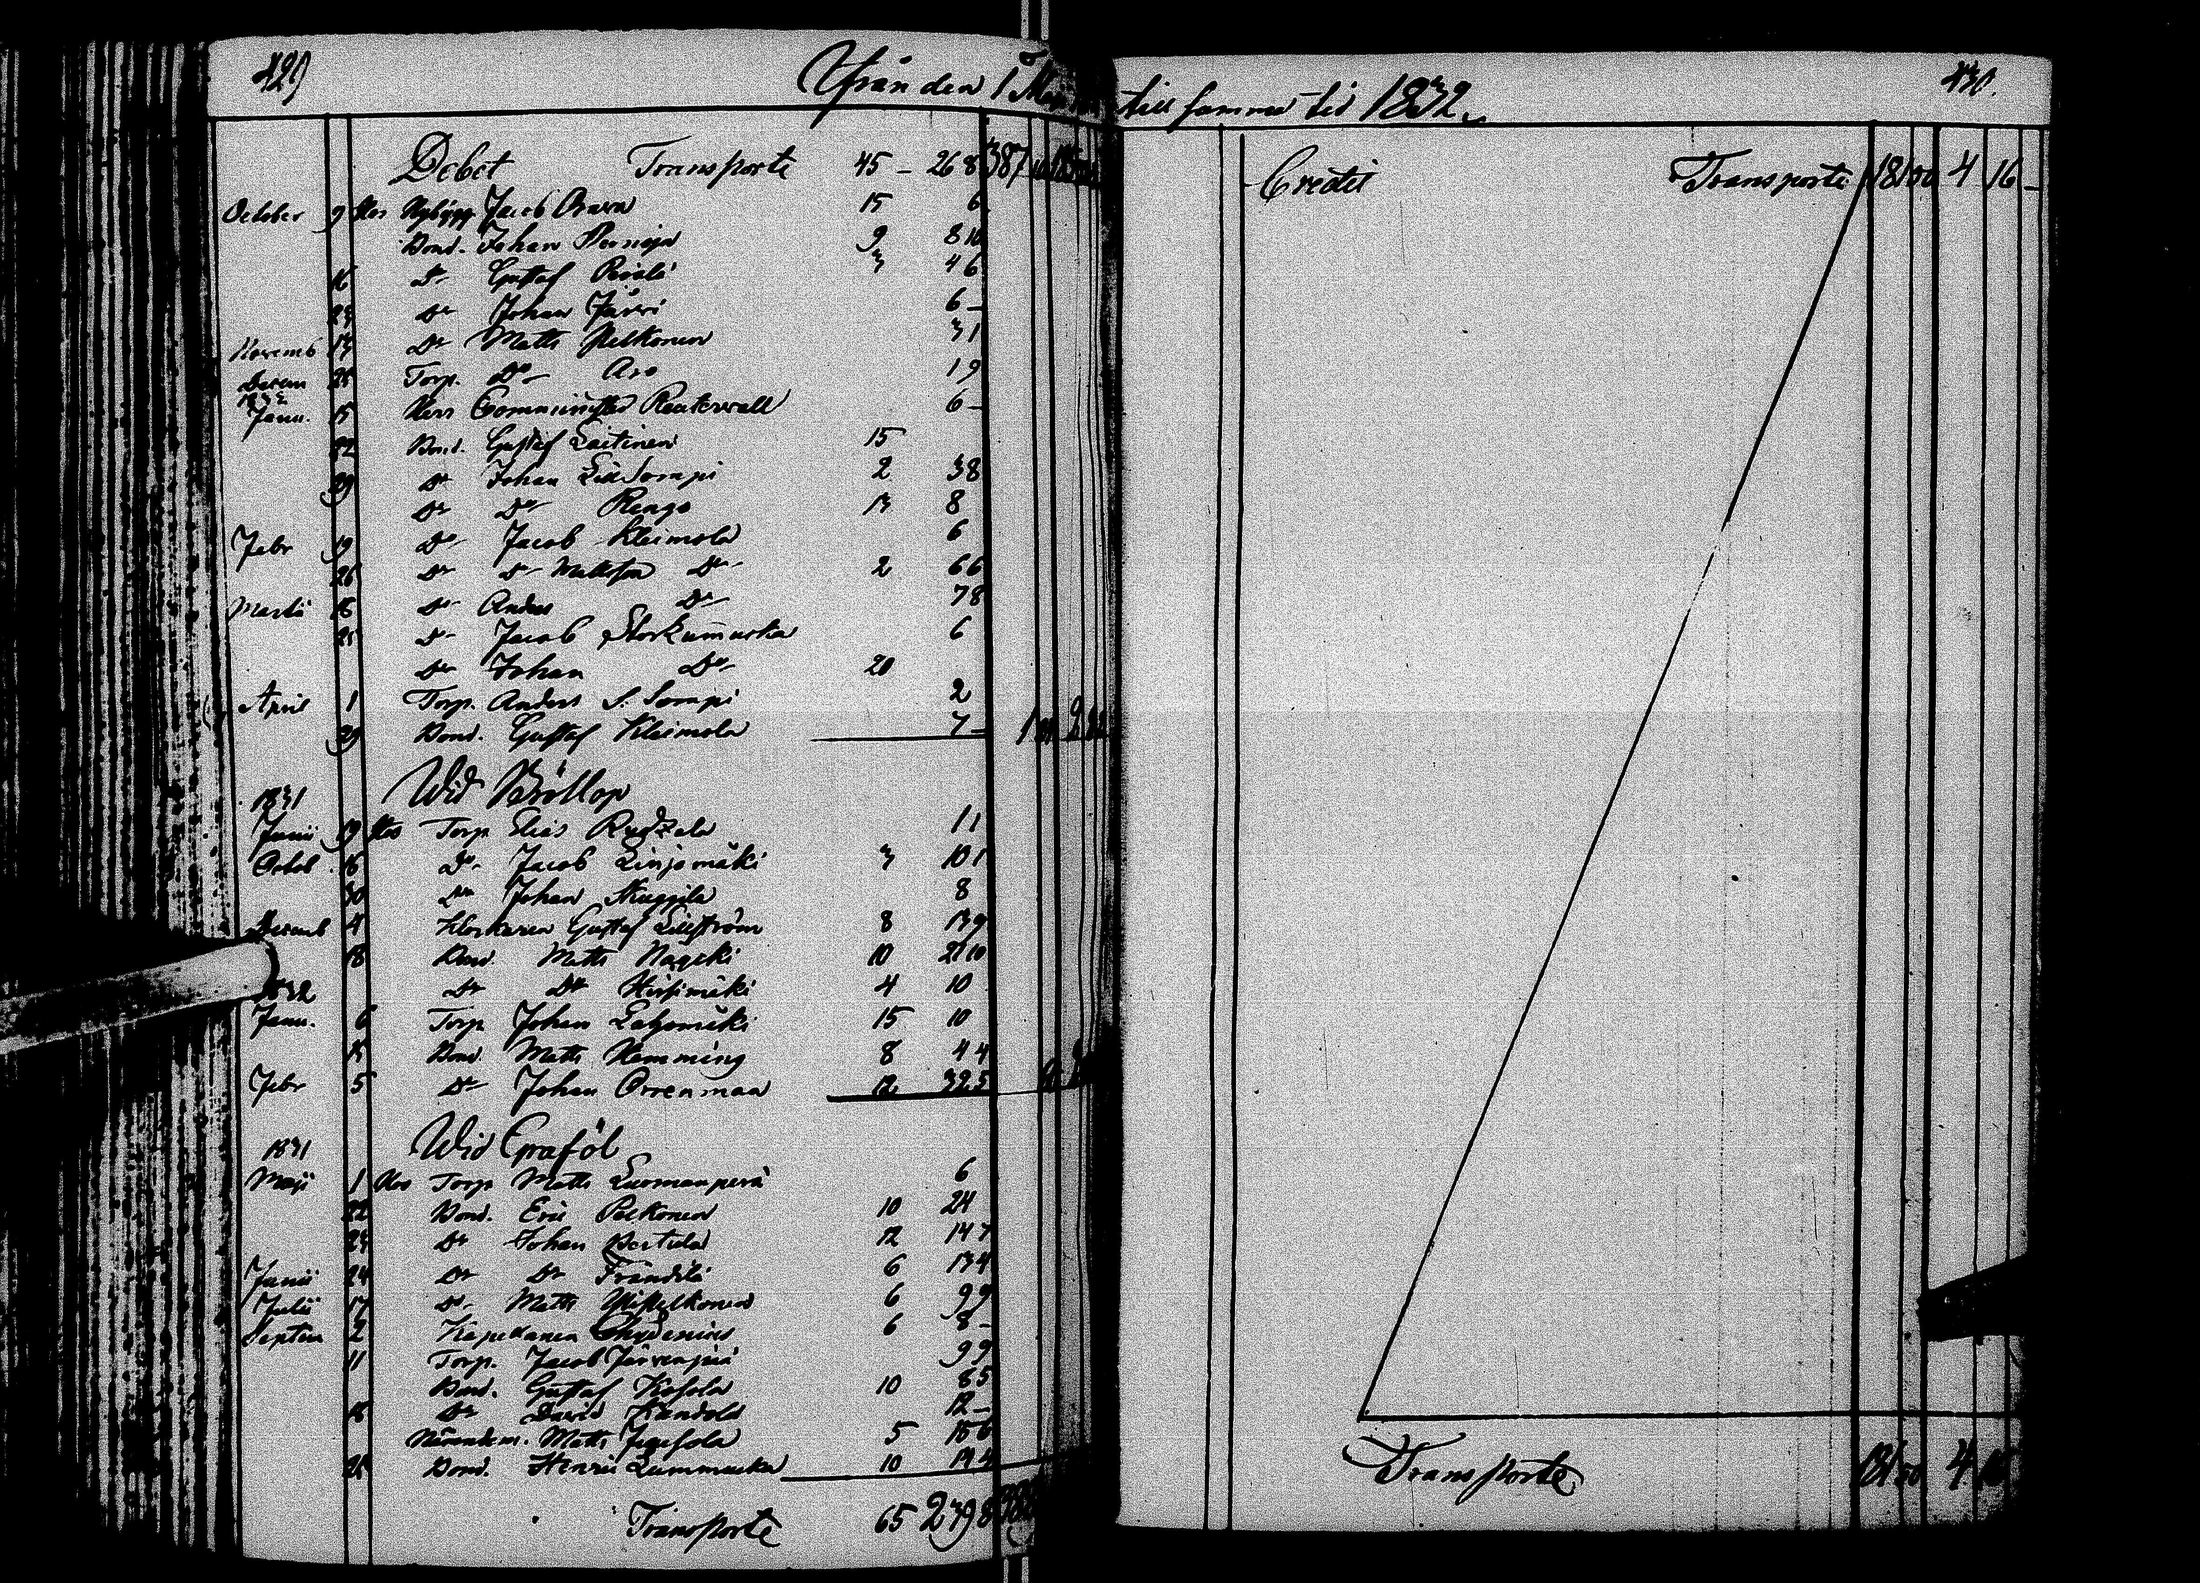 429
Ifrån den 1 Maji
till samma tid 1832
430.
Debet Transporte 45 – 26 8 387
October 9 Hos Nybygg. Jacob Orava 15 6
Bond. Johan Pernaja 9 8 10
16 Do Gustaf Perälä 3 4 6
23 Do Johan Järvi 6 –
Novemb 13 Do Matts Pelkonen 3 1
Decem 25 Torp. Do Aro 1 9
1832
Janu. 15 Herr Comminister Reuterwall 6 –
22 Bond. Gustaf Laitinen 15
29 Do Johan Lillsompi 2 3 8
Do Do Rengo 13 8
Febr 19 Do Jacob Kleimola 6
26 Do Do Mattsson Do 2 6 6
Martii 18 Do Anders Do 7 8
25 Do Jacob Storkummuka 6
Do Johan Do 20
April 1 Torp. Anders S. Sompi 2
29 Bond. Gustaf Kleimola 7 –
Wid Bröllop
1831
Junii 19 Hos Torp Elias Rudzela 1 1
Octob. 16 Do Jacob Linjamäki 3 10 1
30 Do Johan Nuppila 8
Decemb 4 Klockaren Gustaf Lillström 8 13 9
18 Bond. Matts Napeki 10 21 10
Do Do Hirsimäki 4 10
1832
Janu. 6 Torp Johan Latjomäki 15 10
15 Bond. Matts Hemming 8 4 4
Febr 5 Do Johan Orrenmaa 12 32 5
Wid Graföl
1831
Maji 1 Hos Torp Matts Luomanperä 6
22 Bond. Eric Pelkonen 10 24
23 Do Johan Pertula 12 14 7
Junii 24 Do Do Frändilä 6 13 4
Julii 17 Do Matts Ylipelkonen 6 9 9
Septem 2 Kapellanen Chydenius 6 8 –
11 Torp. Jacob Järvenpää 9 9
Bond. Gustaf Kosola 10 8 5
18 Do David Kandola 12 –
Nämndem. Matts Jepsola 5 15 6
25 Bond. Henric Lummukka 10 14 4
Transporte 65 239 8
Credit Transporte 181 4 16 –
Transporte 181 4